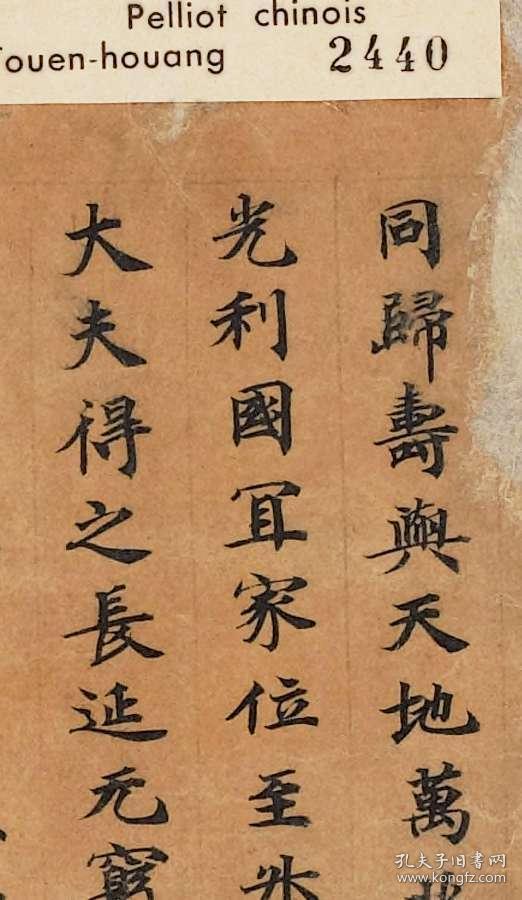 Pelliot chinois
Touen-houang 2440
同歸壽與天地萬
光利國冝家位至
大夫得之長延无窮
孔夫子旧书网
www.kongfz.com